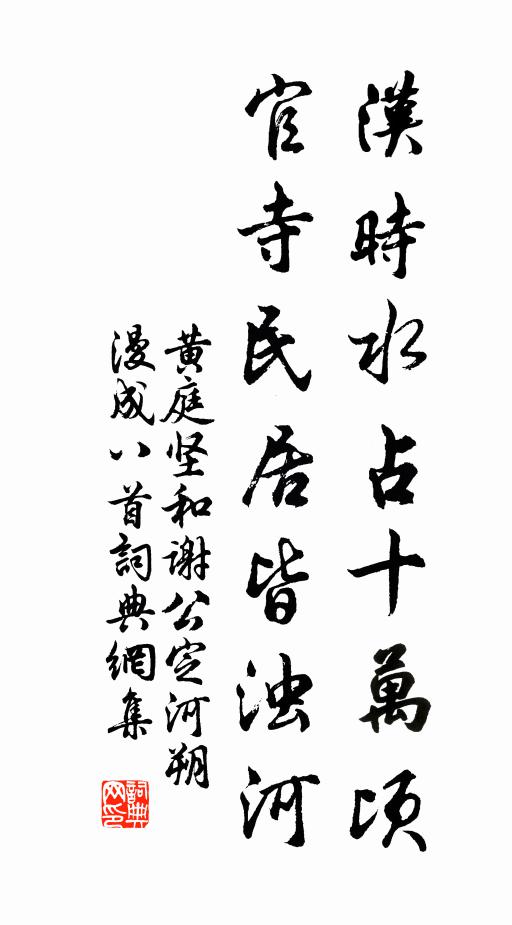 漢時水占十萬頃
官寺民居皆浊河
黄庭坚和谢公定河朔
漫成八首詞典網集
詞典网印